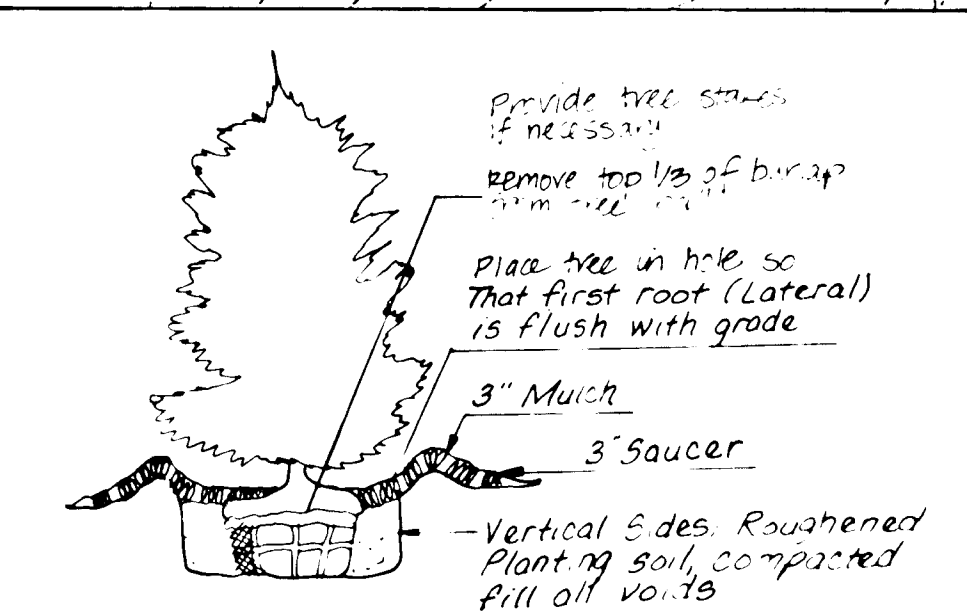 Provide tree stakes
if necessary
Remove top 1/3 of burlap
Place tree in hole so
That first root (Lateral)
is flush with grade
3" Mulch
3" Saucer
Vertical Sides, Roughened
Planting soil, compacted
fill all voids